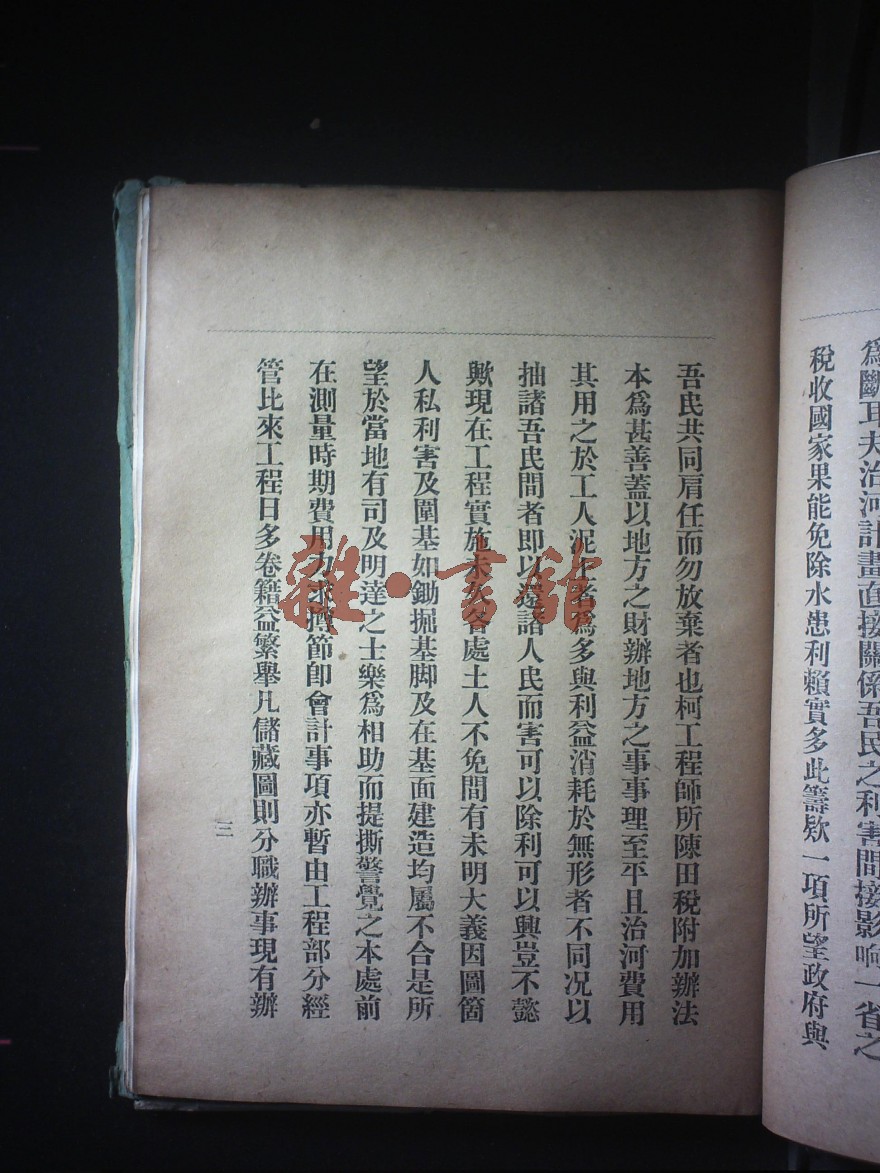 為斷耳夫治河計畫直接關係吾民之利害間接影响一省之
稅收國家果能免除水患利賴實多此籌欵一項所望政府與
吾民共同肩任而勿放棄者也柯工程師所陳田稅附加辦法
本爲甚善蓋以地方之財辦地方之事事理至平且治河費用
其用之於工人泥土者爲多與利益消耗於無形者不同况以
抽諸吾民間者卽以還諸人民而害可以除利可以興豈不懿
歟現在工程實施未久各處土人不免間有未明大義因圖箇
人私利害及圍基如鋤掘基脚及在基面建造均屬不合是所
望於當地有司及明達之士樂爲相助而提撕警覺之本處前
在測量時期費用力求撙節卽會計事項亦暫由工程部分經
管比來工程日多卷籍益繁舉凡儲藏圖則分職辦事現有辦
三
雜·書館